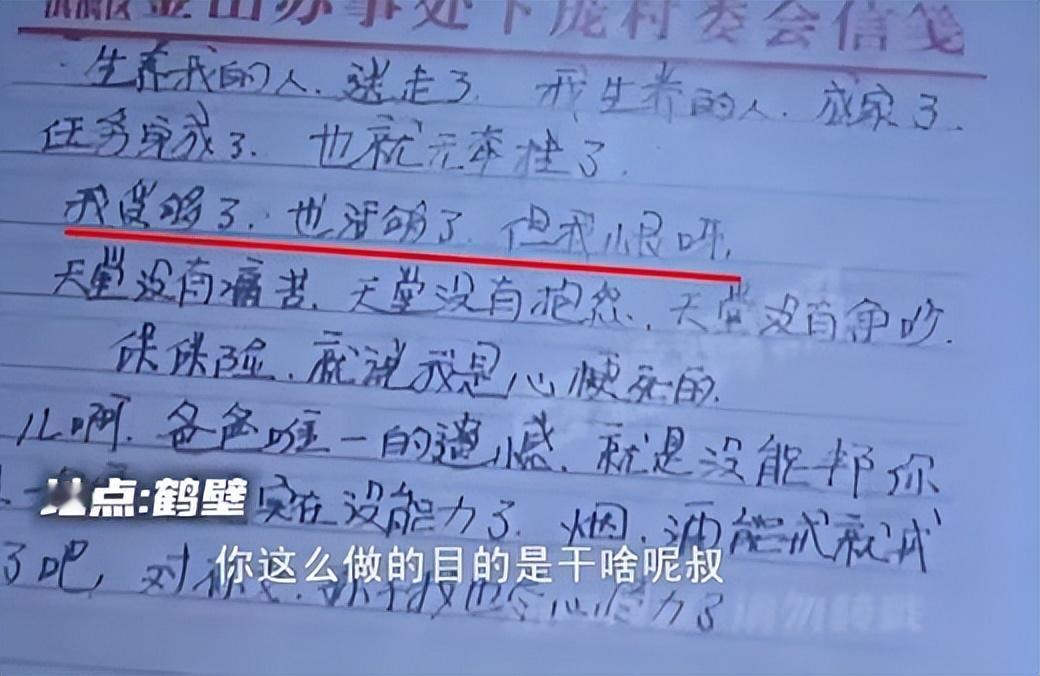 金山办事处下庞村委会信笺
生养我的人.送走了.我生养的人.成家了.
任务完成了.也就无牵挂了.
我受够了.也活够了.但我恨呀.
天堂没有痛苦.天堂没有抱怨.天堂没有争吵.
保保险.就说我是心梗死的.
儿啊.爸爸唯一的遗憾.就是没能帮你
实在没能力了.烟.酒能戒就戒
地点:鹤壁
了吧,对
你这么做的目的是干啥呢叔
力了
请勿转载